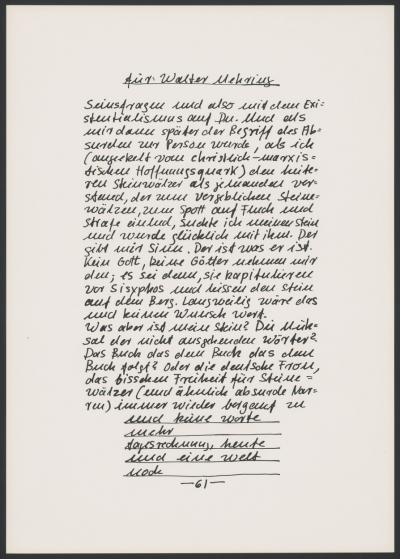 für Walter Mehring
Seinsfragen und also mit dem Exi-
stentialismus auf Du. Und als
mir dann später der Begriff des Ab-
surden zur Person wurde, als ich
(angeekelt vom christlich-marxis-
tischen Hoffnungsquark) den heite-
ren Steinwälzer als jemanden ver-
stand, der zum vergeblichen Steine-
wälzen, zum Spott auf Fluch und
Strafe einlud, suchte ich meinen Stein
und wurde glücklich mit ihm. Der
gibt mir Sinn. Der ist was er ist.
Kein Gott, keine Götter nehmen mir
den; es sei denn, sie kapitulieren
vor Sisyphos und lassen den Stein
auf dem Berg. Langweilig wäre das
und keinen Wunsch wert.
Was aber ist mein Stein? Die Müh-
sal der nicht ausgehenden Wörter?
Das Buch das dem Buch das dem
Buch folgt? Oder die deutsche Fron,
das bisschen Freiheit für Steine-
wälzer (und ähnlich absurde Nar-
ren) immer wieder bergauf zu
und keine worte
mehr
heute
und eine welt
noch
—61—